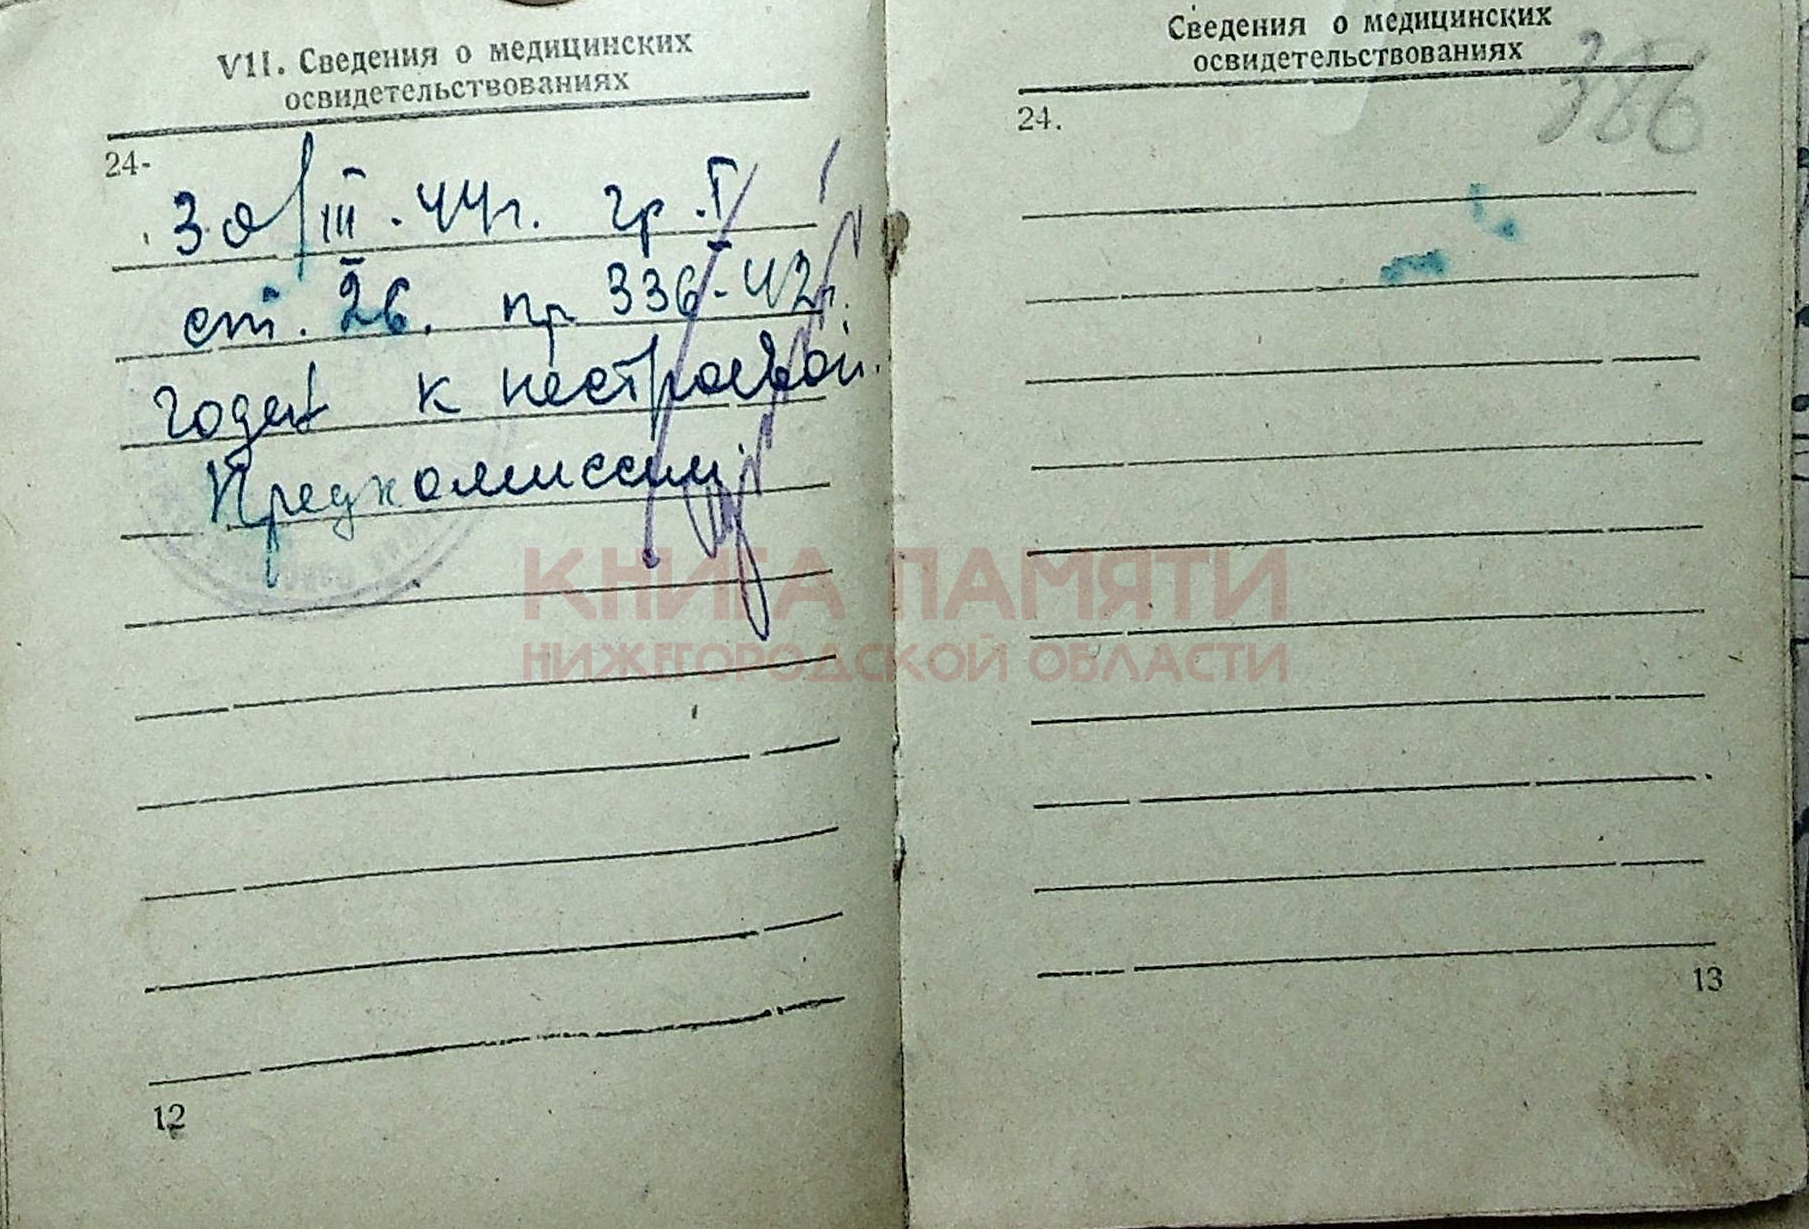 VII. Сведения о медицинских
освидетельствованиях
24-
30/III.44г. гр. I
ст. 26. пр 336-42г.
годен к нестроевой.
Предкомиссии
12
Сведения о медицинских
освидетельствованиях
386
24.
13
КНИГА ПАМЯТИ
НИЖЕГОРОДСКОЙ ОБЛАСТИ